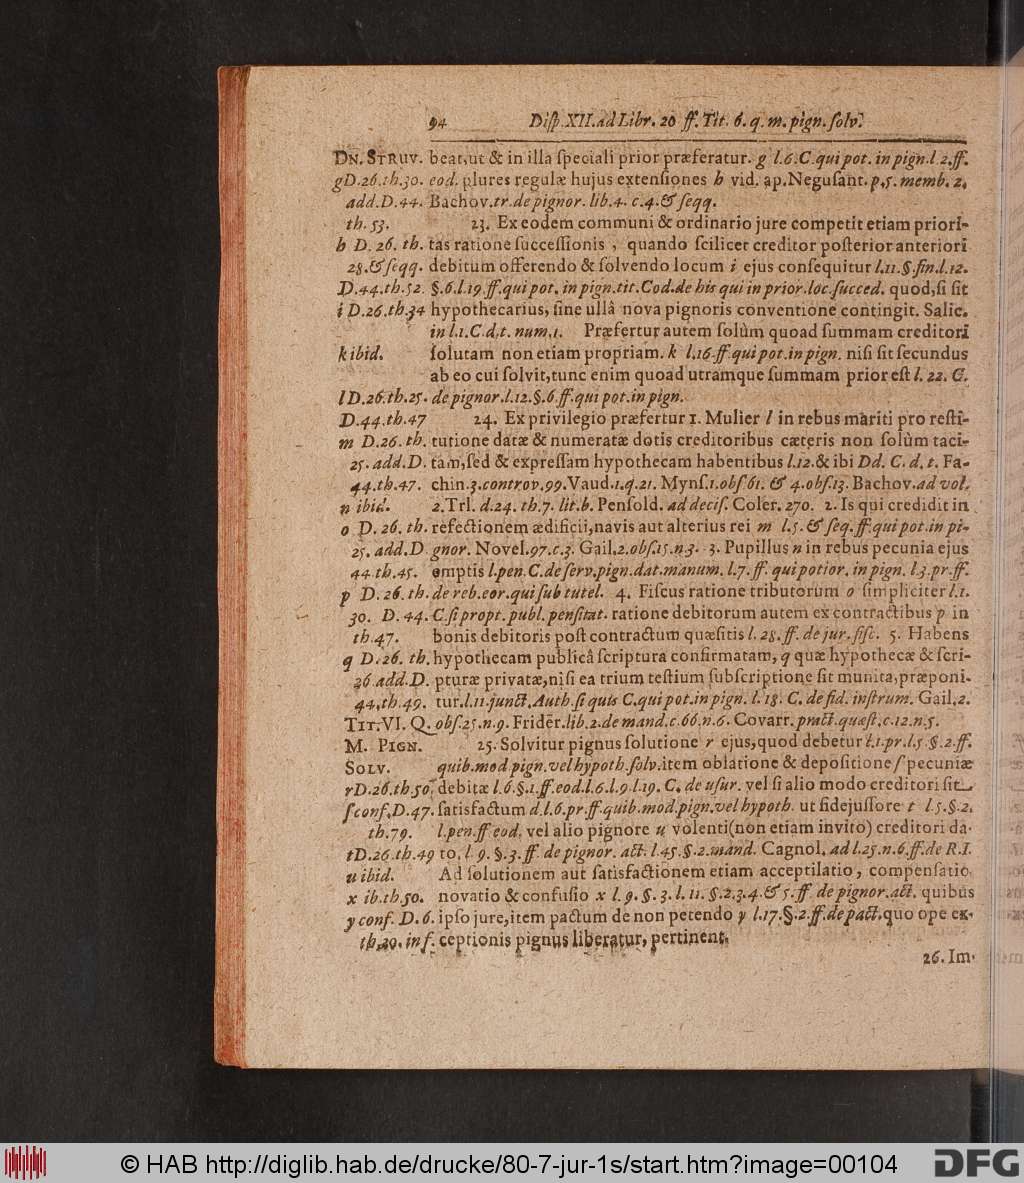 94 Disp. XII. ad Libr. 20 ff. Tit. 6. q. m. pign. solv.
DN. STRUV. beat, ut & in illa speciali prior præferatur. g l. 6. C. qui pot. in pign. l 2. ff.
g D. 26. th. 30. eod. plures regulæ hujus extensiones h vid. ap. Negusant. p. 5. memb. 2.
add. D. 44. Bachov. tr. de pignor. lib. 4. c. 4. & seqq.
th. 53. 23. Ex eodem communi & ordinario jure competit etiam priori-
h D. 26. th. tas ratione successionis, quando scilicet creditor posterior anteriori
28. & seqq. debitum offerendo & solvendo locum i ejus consequitur l. 11. §. fin. l. 12.
D. 44. th. 52. §. 6. l. 19. ff. qui pot. in pign. tit. Cod. de his qui in prior. loc. succed. quod, si sit
i D. 26. th. 34 hypothecarius, sine ullâ nova pignoris conventione contingit. Salic.
in l. 1. C. d. t. num. 1. Præfertur autem solùm quoad summam creditori
k ibid. solutam non etiam propriam. k l. 16. ff. qui pot. in pign. nisi sit secundus
ab eo cui solvit, tunc enim quoad utramque summam prior est l. 22. C.
l D. 26. th. 25. de pignor. l. 12. §. 6. ff. qui pot. in pign.
D. 44. th. 47 24. Ex privilegio præfertur 1. Mulier l in rebus mariti pro resti-
m D. 26. th. tutione datæ & numeratæ dotis creditoribus cæteris non solùm taci-
25. add. D. tam, sed & expressam hypothecam habentibus l. 12. & ibi Dd. C. d. t. Fa-
44. th. 47. chin. 3. controv. 99. Vaud. 1. q. 21. Myns. 1. obs. 61. & 4. obs. 13. Bachov. ad vol.
n ibid. 2. Trl. d. 24. th. 7. lit. b. Pensold. ad decis. Coler. 270. 2. Is qui credidit in
o D. 26. th. refectionem ædificii, navis aut alterius rei m l. 5. & seq. ff. qui pot. in pi-
25. add. D. gnor. Novel. 97. c. 3. Gail. 2. obs. 15. n. 3. 3. Pupillus n in rebus pecunia ejus
44. th. 45. emptis l. pen. C. de serv. pign. dat. manum. l. 7. ff. qui potior. in pign. l. 3. pr. ff.
p D. 26. th. de reb. eor. qui sub tutel. 4. Fiscus ratione tributorum o simpliciter l. 1.
30. D. 44. C. si propt. publ. pensitat. ratione debitorum autem ex contractibus p in
th. 47. bonis debitoris post contractum quæsitis l. 28. ff. de jur. fisc. 5. Habens
q D. 26. th. hypothecam publicâ scriptura confirmatam, q quæ hypothecæ & scri-
26 add. D. pturæ privatæ, nisi ea trium testium subscriptione sit munita, præponi-
44. th. 49. tur. l. 11. junct. Auth. si quis C. qui pot. in pign. l. 18. C. de fid. instrum. Gail. 2.
TIT. VI. Q. obs. 25. n. 9. Frider. lib. 2. de mand. c. 66. n. 6. Covarr. pract. quæst. c. 12. n. 5.
M. PIGN. 25. Solvitur pignus solutione r ejus, quod debetur l. 1. pr. l. 5. §. 2. ff.
SOLV. quib. mod. pign. vel hypoth. solv. item oblatione & depositione s pecuniæ
r D. 26. th. 50. debitæ l. 6. §. 1. ff. eod. l. 6. l. 9. l. 19. C. de usur. vel si alio modo creditori sit
s conf. D. 47. satisfactum d. l. 6. pr. ff. quib. mod. pign. vel hypoth. ut fidejussore t l. 5. §. 2.
th. 79. l. pen. ff. eod. vel alio pignore u volenti (non etiam invito) creditori da-
t D. 26. th. 49 to. l. 9. §. 3. ff. de pignor. act. l. 45. §. 2. mand. Cagnol. ad l. 25. n. 6. ff. de R. I.
u ibid. Ad solutionem aut satisfactionem etiam acceptilatio, compensatio
x ib. th. 50. novatio & confusio x l. 9. §. 3. l. 11. §. 2. 3. 4. & 5. ff. de pignor. act. quibus
y conf. D. 6. ipso jure, item pactum de non petendo y l. 17. §. 2. ff. de pact. quo ope ex-
th. 20. inf. ceptionis pignus liberatur, pertinent.
26. Im-
© HAB http://diglib.hab.de/drucke/80-7-jur-1s/start.htm?image=00104
DFG